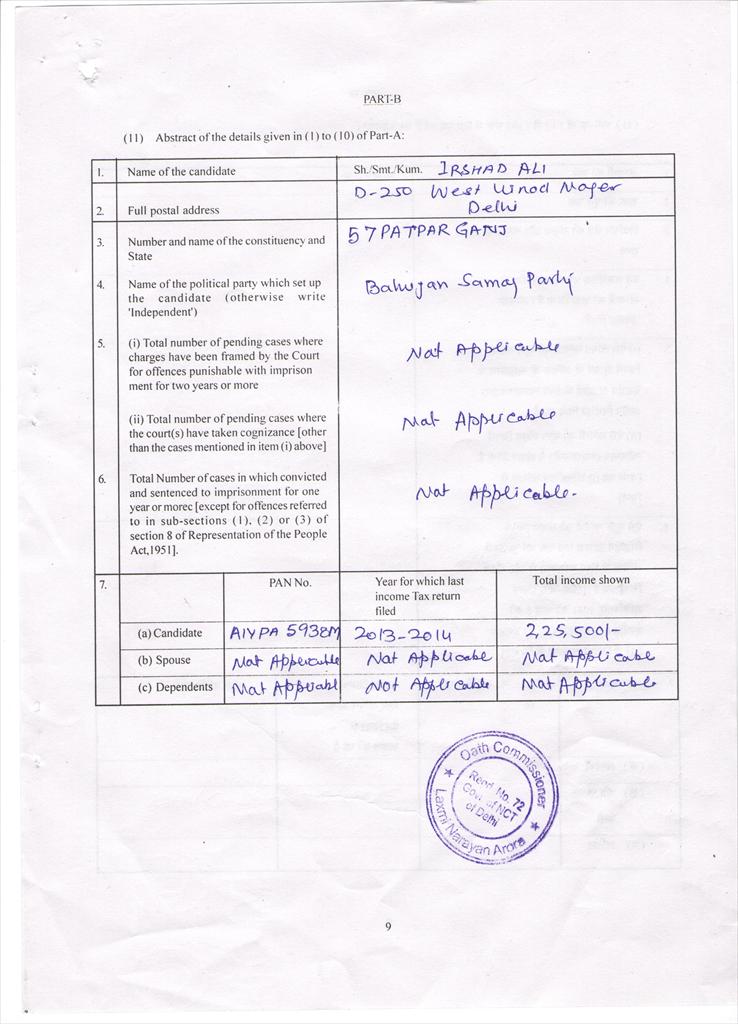 PART-B
(11) Abstract of the details given in (1) to (10) of Part-A:
1. Name of the candidate Sh./Smt./Kum. IRSHAD ALI
2. Full postal address D-250 West Vinod Nager
Delhi
3. Number and name of the constituency and 57 PATPAR GANJ
State
4. Name of the political party which set up Bahujan Samaj Party
the candidate (otherwise write
'Independent')
5. (i) Total number of pending cases where Not Applicable
charges have been framed by the Court
for offences punishable with imprison
ment for two years or more
(ii) Total number of pending cases where Not Applicable
the court(s) have taken cognizance [other
than the cases mentioned in item (i) above]
6. Total Number of cases in which convicted Not Applicable.
and sentenced to imprisonment for one
year or morec [except for offences referred
to in sub-sections (1), (2) or (3) of
section 8 of Representation of the People
Act,1951].
7. PAN No. Year for which last Total income shown
income Tax return
filed
(a) Candidate AIYPA 5938M 2013-2014 2,25,500/-
(b) Spouse Not Applicable Not Applicable Not Applicable
(c) Dependents Not Applicable Not Applicable Not Applicable
Oath Commissioner
Regd. No. 72
Govt. of NCT
of Delhi
Laxmi Narayan Arora
9